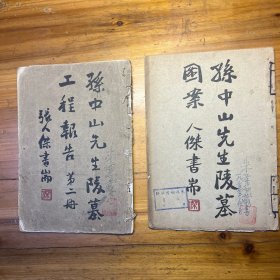 孫中山先生陵墓
工程報告 第二冊
張人傑書耑
孫中山先生陵墓
圖案 人傑書耑